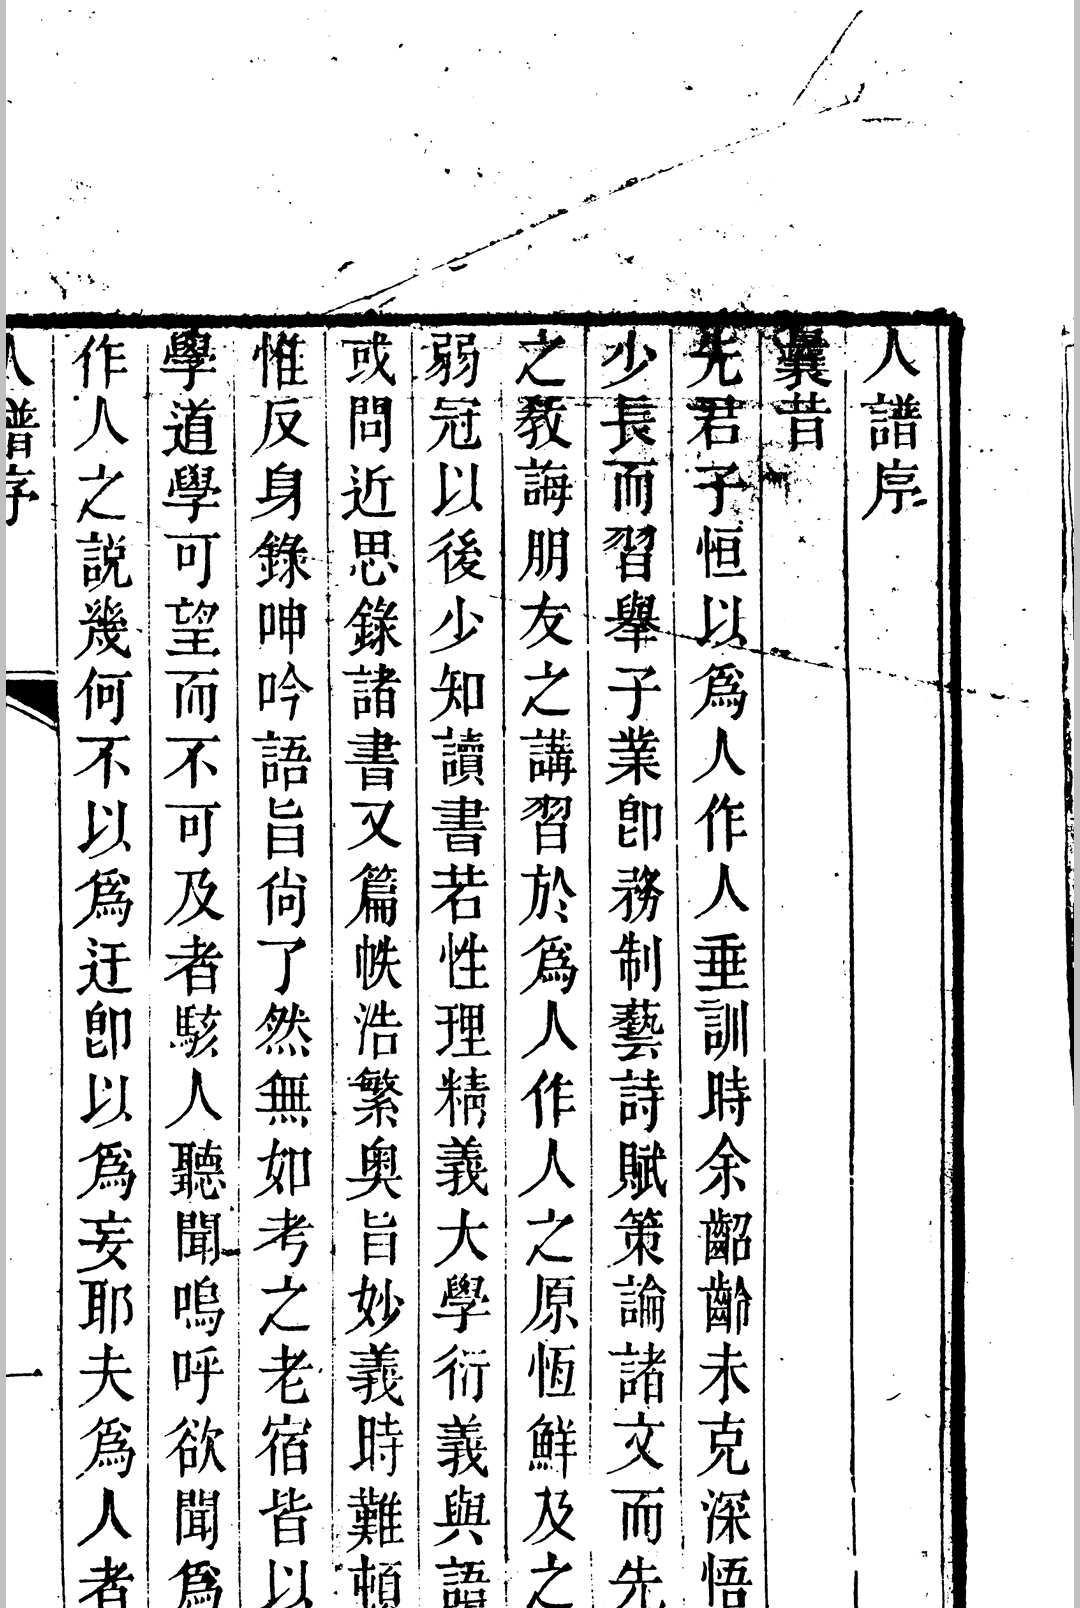 人譜序
曩昔
先君子恒以爲人作人垂訓時余齠齡未克深悟
少長而習舉子業卽務制藝詩賦策論諸文而先
之教誨朋友之講習於爲人作人之原恆鮮及之
弱冠以後少知讀書若性理精義大學衍義與語
或問近思錄諸書又篇帙浩繁奥旨妙義時難頓
惟反身錄呻吟語旨尙了然無如考之老宿皆以
學道學可望而不可及者駭人聽聞嗚呼欲聞爲
作人之説幾何不以爲迂卽以爲妄耶夫爲人者
人譜序
一